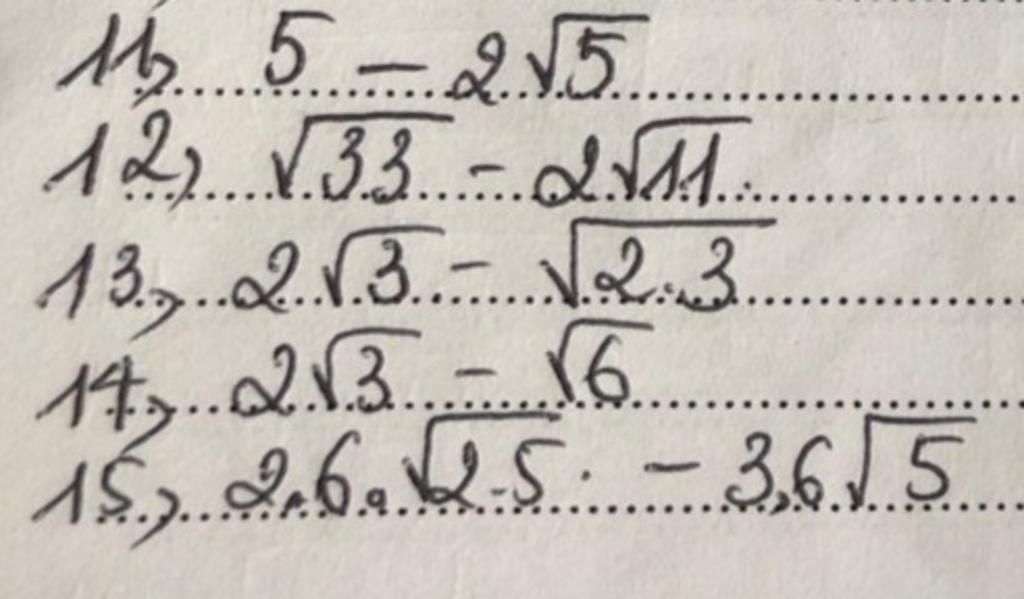 11, 5 - 2√5
12, √33 - 2√11
13, 2√3 - √2.3
14, 2√3 - √6
15, 2.6.√2.5 - 3,6√5